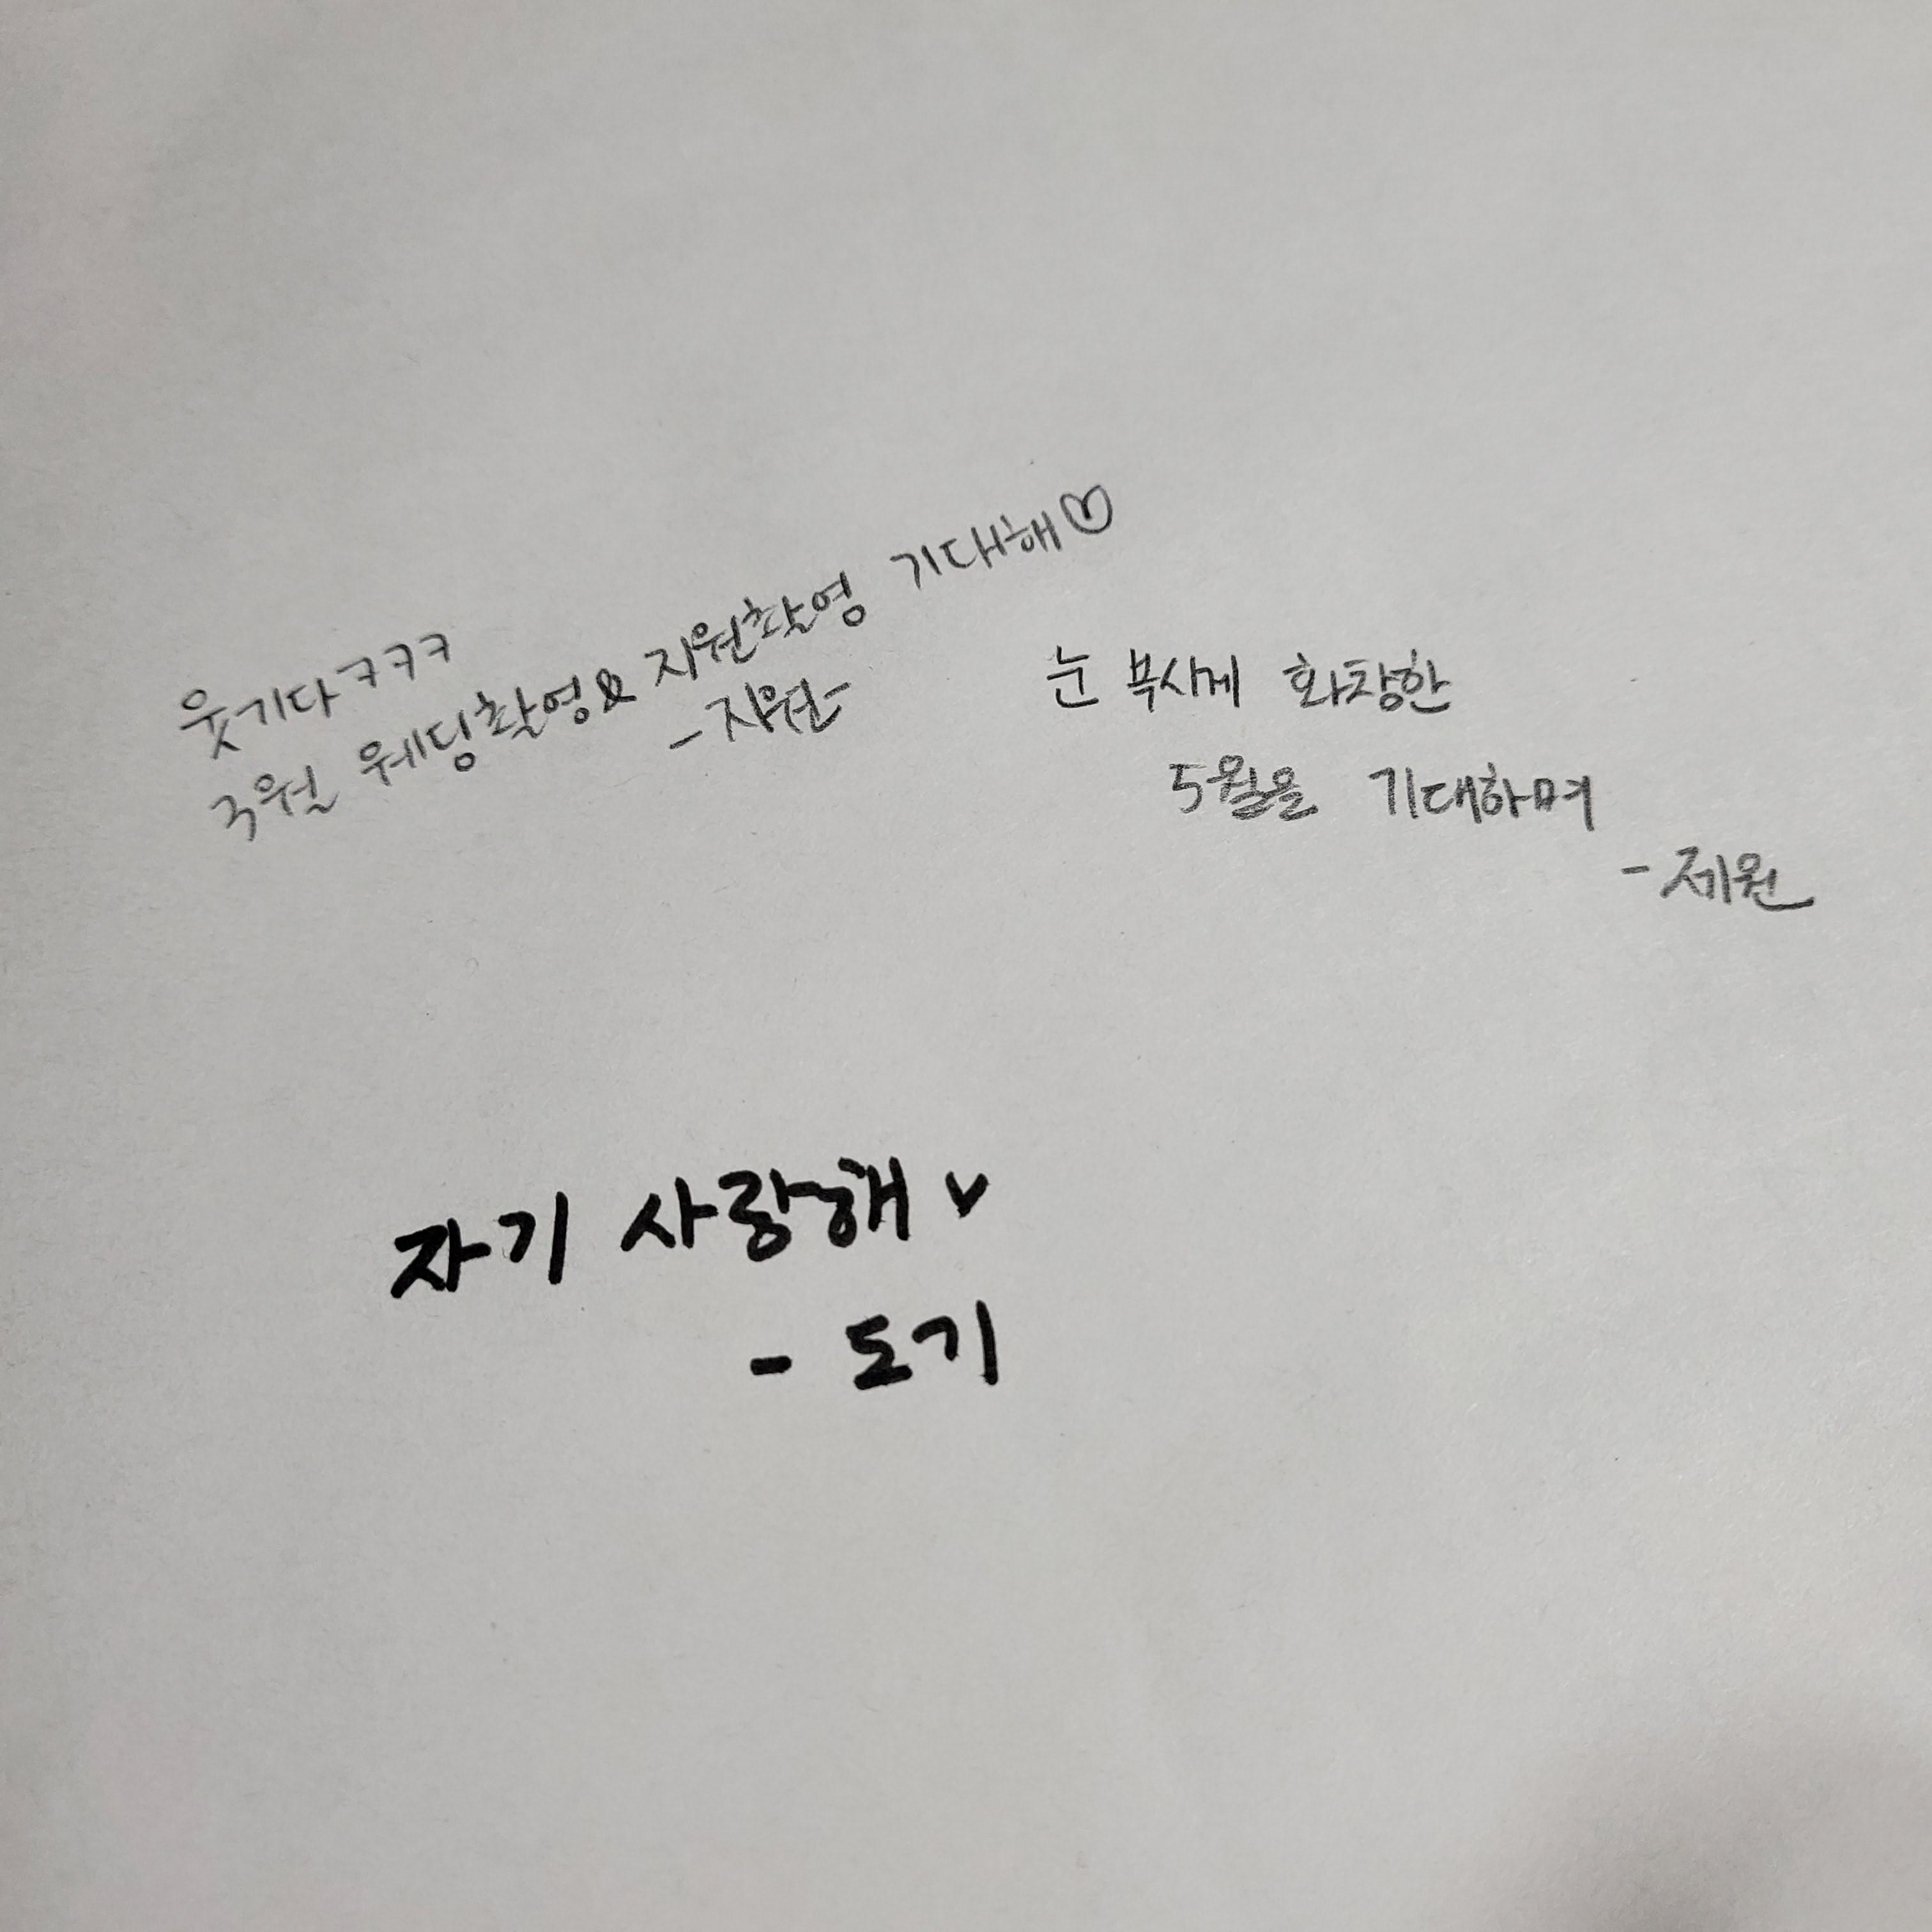 웃기다ㅋㅋㅋ
3월 웨딩촬영& 지원촬영 기대해♡
-지원-
눈 부시게 화창한
5월을 기대하며
- 제원
자기 사랑해♥
- 도기